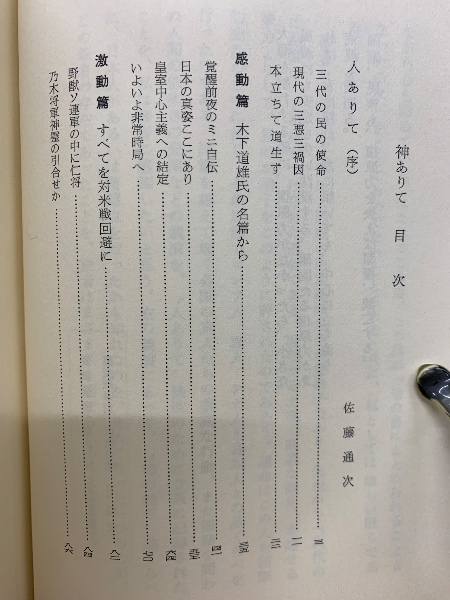 神ありて 目次
人ありて（序） 佐藤通次
三代の民の使命
現代の三悪三禍因
本立ちて道生ず
感動篇 木下道雄氏の名篇から
覚醒前夜のミニ自伝
日本の真姿ここにあり
皇室中心主義への結定
いよいよ非常時局へ
激動篇 すべてを対米戦回避に
野獣ソ連軍の中に仁将
乃木将軍神霊の引合せか